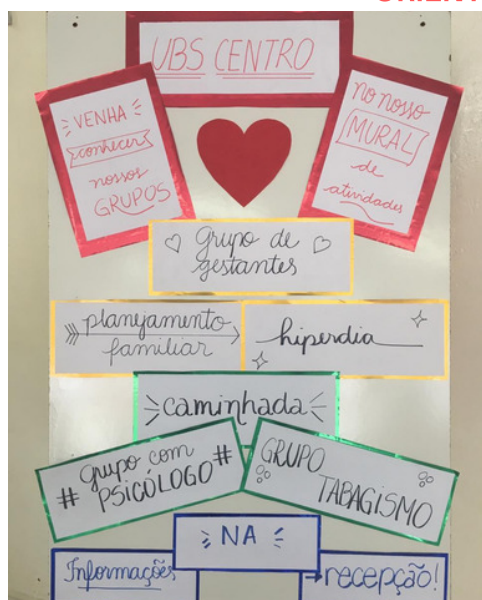 UBS CENTRO
VENHA
conhecer
nossos
GRUPOS
no nosso
MURAL
de
atividades
Grupo de
gestantes
planejamento
familiar
hiperdia
caminhada
# grupo com #
PSICÓLOGO
GRUPO
TABAGISMO
NA
Informações
→recepção!